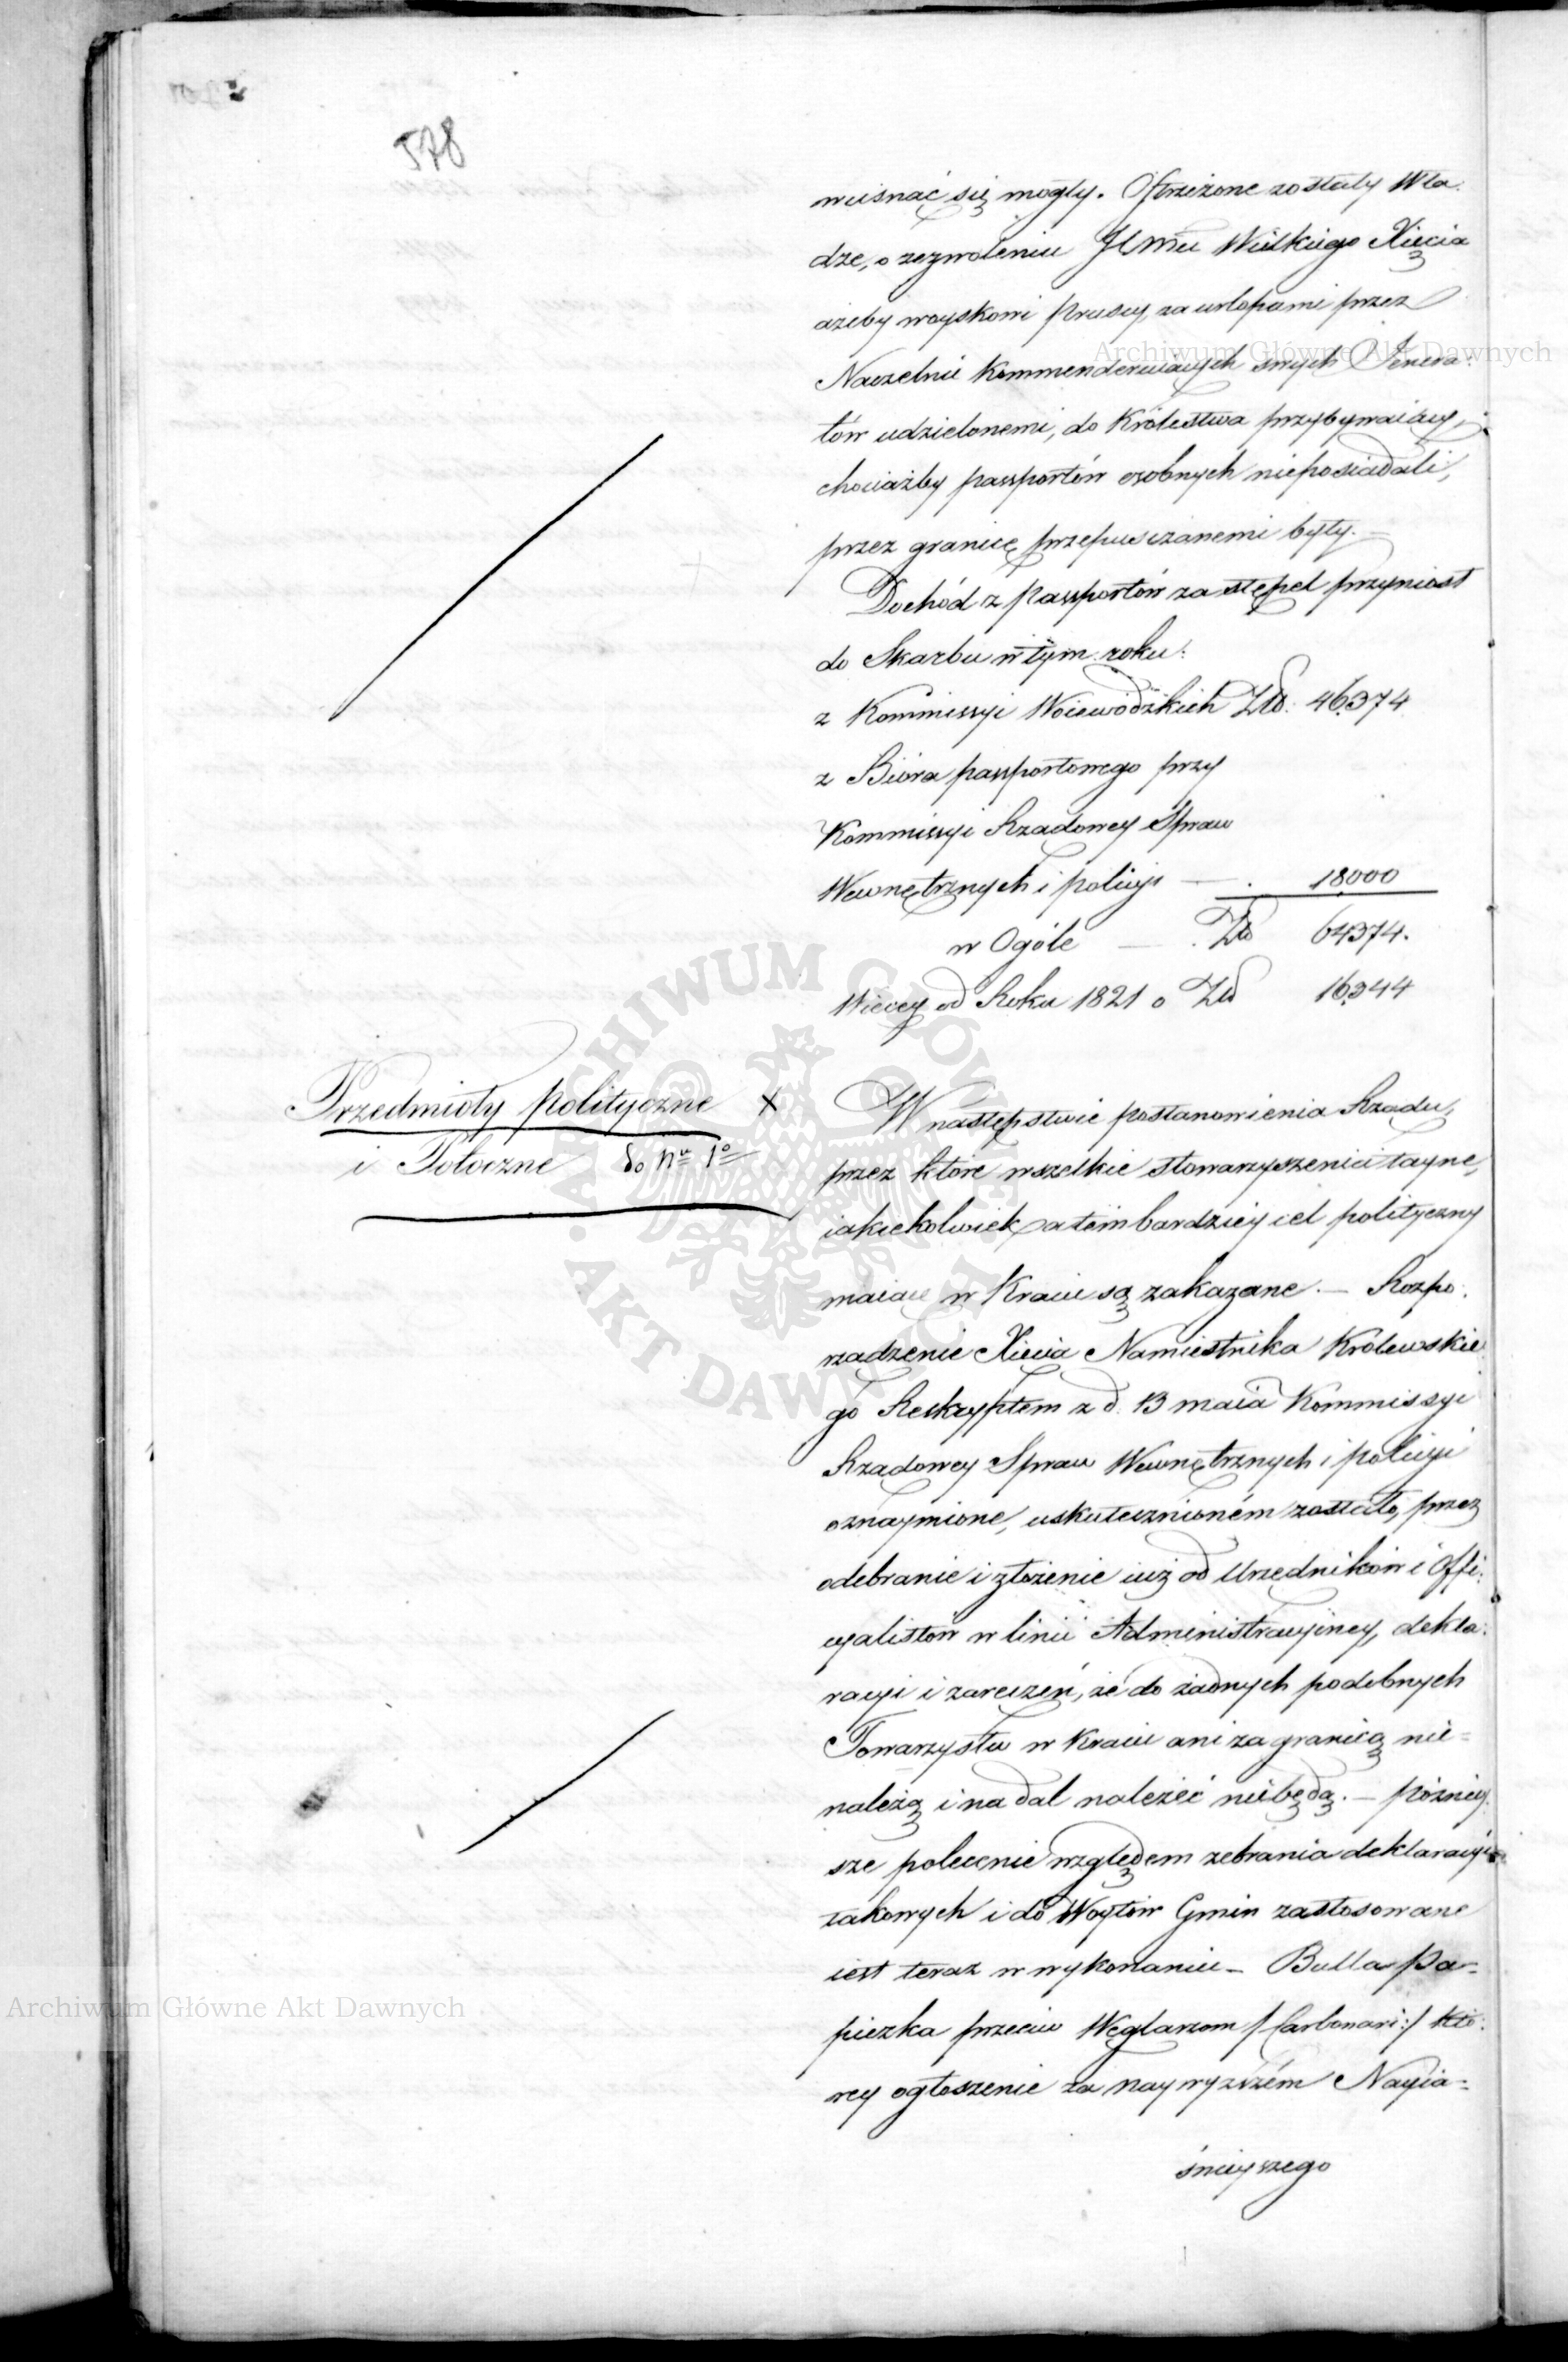 578
wcisnąć się mogły. Ostrzeżone zostały Wła:
dze, o zezwoleniu JCMci Wielkiego Xięcia
ażeby woyskowi Pruscy, za urlopami przez
Naczelnie kommenderuiących swych Jenera:
łów udzielonemi, do Królestwa przybywaiący,
chociażby passportów osobnych nieposiadali,
przez granicę przepuszczanemi były.
Dochód z passportów za stępel przyniosł
do Skarbu w tym roku:
z Kommissyi Woiewódzkich Złp: 46374
z Bióra passportowego przy
Kommissyi Rządowey Spraw
Wewnętrznych i policyi — . 18000
w Ogóle — . Złp 64374.
Więcey od Roku 1821 o Złp 16344
Przedmioty polityczne X
i Potoczne do nu 1o
W następstwie postanowienia Rządu,
przez które wszelkie stowarzyszenia tayne,
iakiekolwiek, a tém bardziey cel polityczny
maiące w Kraiu są zakazane. — Rozpo:
rządzenie Xięcia Namiestnika Królewskie
go Reskryptem z d. 13 maia Kommissyi
Rządowey Spraw Wewnętrznych i policyi
oznaymione, uskutecznioném zostało, przez
odebranie i złożenie iuż od Urzędników i Offi:
cyalistów w linii Administracyiney, dekla:
racyi i zaręczeń, że do żadnych podobnych
Towarzystw w Kraiu ani za granicą nie=
należą i nadal należéć niebędą. — Pózniey
sze polecenie względem zebrania deklaracyi
takowych i do Woytów Gmin zastosowane
iest teraz w wykonaniu — Bulla Pa=
piezka przeciw Węglarzom /:Carbonari:/ któ:
rey ogłoszenie za naywyższém Nayia=
śnieyszego
Archiwum Główne Akt Dawnych
Archiwum Główne Akt Dawnych
ARCHIWUM GŁÓWNE AKT DAWNYCH